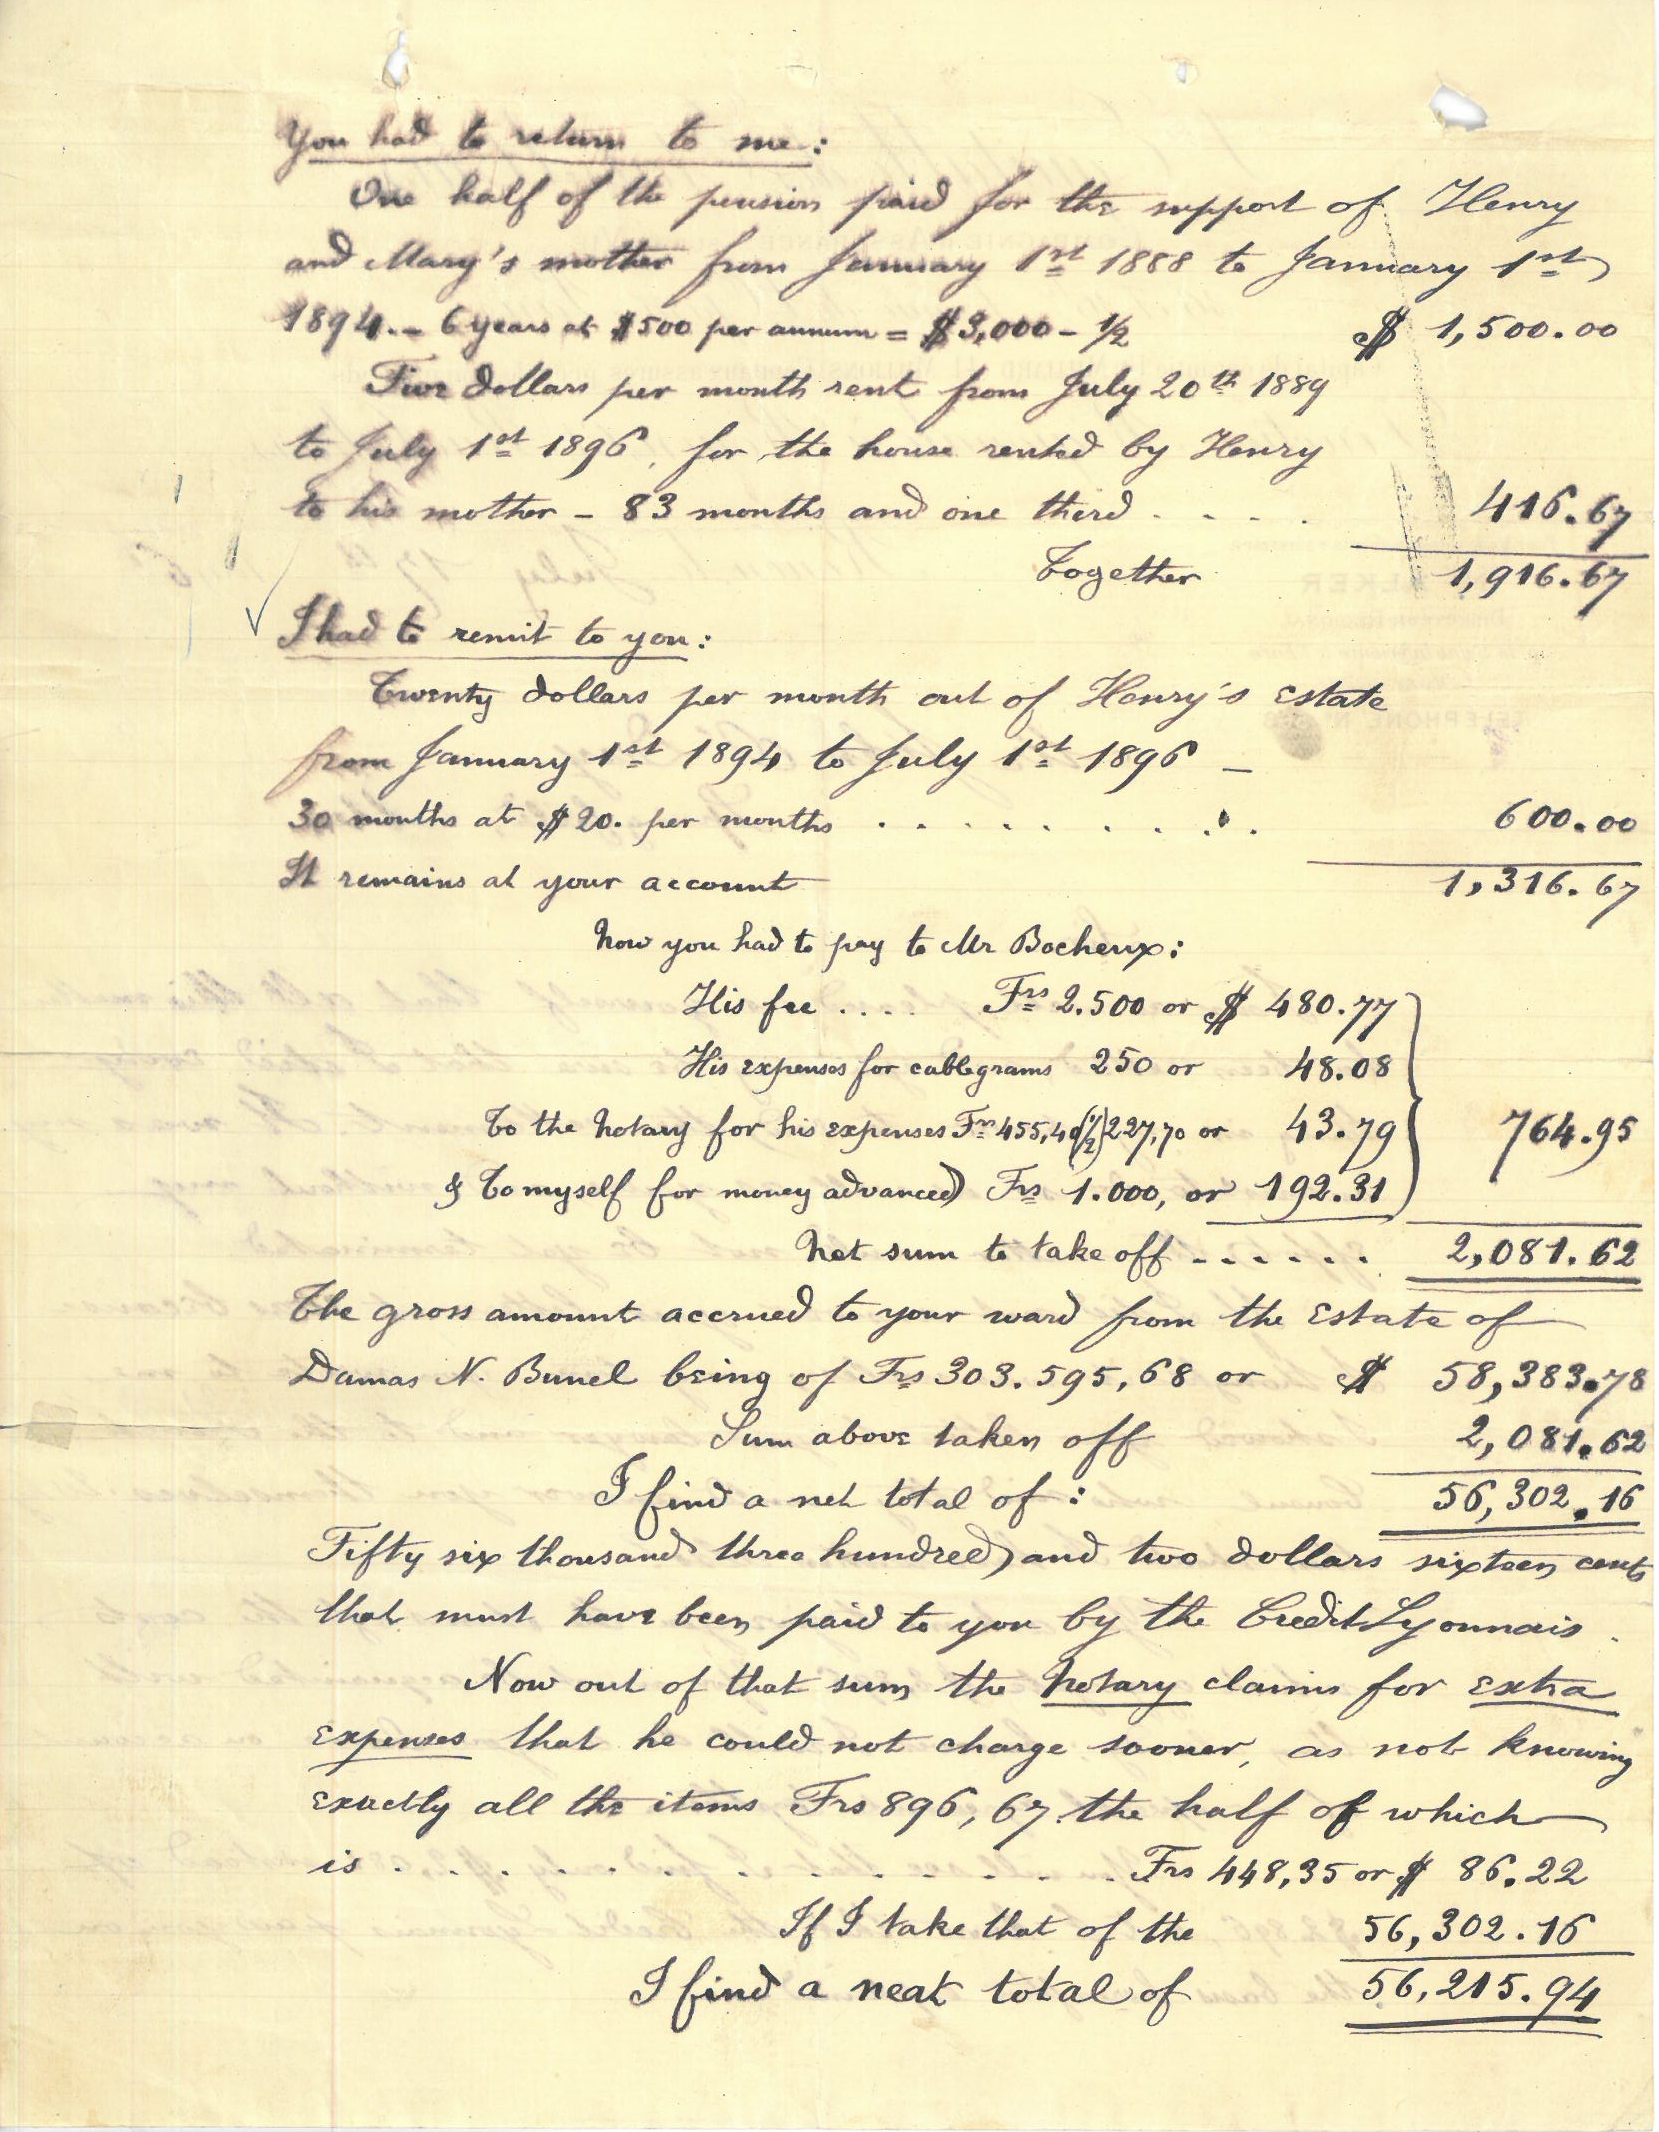 You had to return to me:
One half of the pension paid for the support of Henry
and Mary's mother from January 1st 1888 to January 1st
1894. – 6 years at $500 per annum = $3,000 – 1/2 $ 1,500.00
Five dollars per month rent from July 20th 1889
to July 1st 1896, for the house rented by Henry
to his mother – 83 months and one third . . . . 416.67
Together 1,916.67
I had to remit to you:
Twenty dollars per month out of Henry's estate
from January 1st 1894 to July 1st 1896 –
30 months at $20. per months . . . . . . . . . 600.00
It remains at your account 1,316.67
Now you had to pay to Mr Bocheux:
His fee .... Frs 2.500 or $ 480.77
His expenses for cablegrams 250 or 48.08
To the Notary for his expenses Frs 455,40 (1/2) 227,70 or 43.79 764.95
& To myself for money advanced Frs 1.000, or 192.31
Net sum to take off ...... 2,081.62
The gross amount accrued to your ward from the Estate of
Damas N. Bunel being of Frs 303.595,68 or $ 58,383.78
Sum above taken off 2,081.62
I find a net total of: 56,302.16
Fifty six thousand three hundred and two dollars sixteen cents
that must have been paid to you by the Credit Lyonnais.
Now out of that sum the Notary claims for extra
expenses that he could not charge sooner, as not knowing
exactly all the items Frs 896,67 the half of which
is . . . . . . . . . . . . Frs 448,35 or $ 86.22
If I take that of the 56,302.16
I find a neat total of 56,215.94